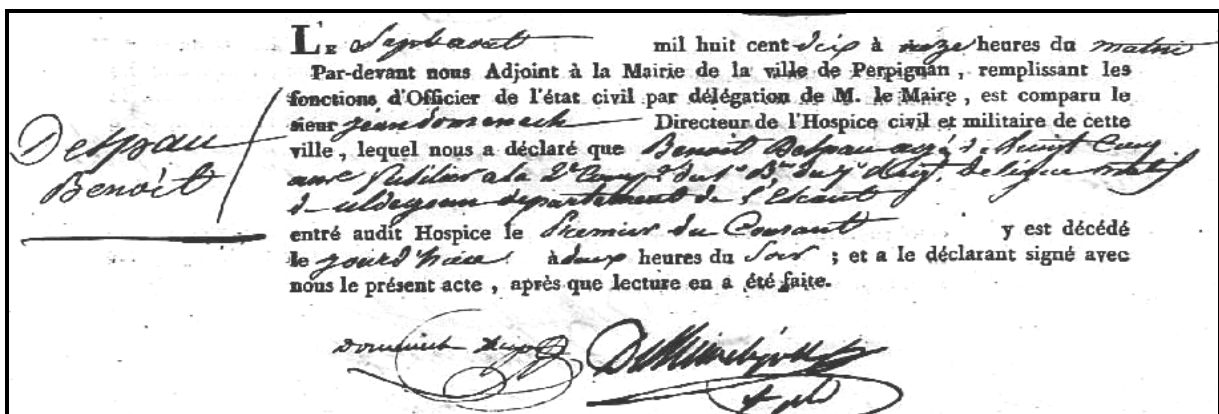 Le Sept aout mil huit cent dix à onze heures du matin
Par-devant nous Adjoint à la Mairie de la ville de Perpignan, remplissant les
fonctions d'Officier de l'état civil par délégation de M. le Maire, est comparu le
sieur jean domenech Directeur de l'Hospice civil et militaire de cette
Despau
Benoit
ville, lequel nous a déclaré que Benoit Despau agé de vingt Cinq
ans fusilier a la 2e Comp.e du 1er B.on du de ligne natif
d' departement de l'Escaut
entré audit Hospice le Premier du Courant y est décédé
le jourd'hier à deux heures du Soir ; et a le déclarant signé avec
nous le présent acte, après que lecture en a été faite.